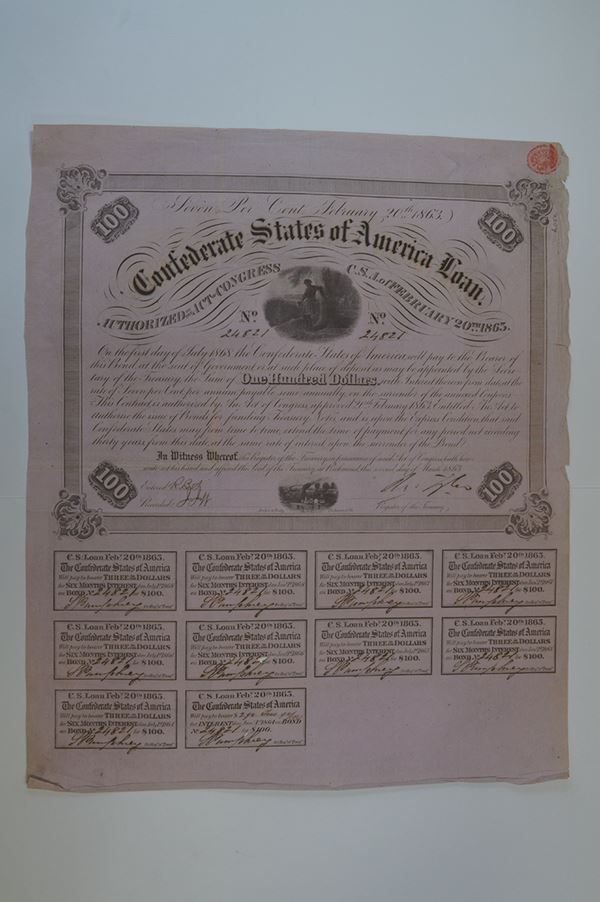 100
100
Seven Per Cent February 20th 1863.
Confederate States of America Loan.
AUTHORIZED BY ACT OF CONGRESS C.S.A. of FEBRUARY 20TH 1863.
No No
24821 24821
On the first day of July 1868 the Confederate States of America will pay to the Bearer of
this Bond at the seat of Government or at such place of deposit as may be appointed by the Secre
tary of the Treasury, the Sum of One Hundred Dollars, with Interest thereon from date, at the
rate of Seven per Cent per annum, payable semi annually, on the surrender of the annexed Coupons
This Contract is authorized by An Act of Congress approved 20th February 1863 Entitled "An Act to
Authorize the issue of Bonds for funding Treasury Notes" and is upon the Express Condition that said
Confederate States may from time to time extend the time of payment for any period not exceeding
thirty years from this date at the same rate of interest upon the surrender of this Bond
In Witness Whereof, the Register of the Treasury in pursuance of said Act of Congress, hath here
unto set his hand and affixed the Seal of the Treasury at Richmond this second day of March 1863
100
100
Entered
Recorded
Register of the Treasury
C.S. Loan Feby. 20th 1863.
The Confederate States of America
Will pay to bearer THREE 50/100 DOLLARS
for SIX MONTHS INTEREST due July 1st 1868
on BOND No 24821 for $100.
C.S. Loan Feby. 20th 1863.
The Confederate States of America
Will pay to bearer THREE 50/100 DOLLARS
for SIX MONTHS INTEREST due Jany 1st 1868
on BOND No 24821 for $100.
C.S. Loan Feby. 20th 1863.
The Confederate States of America
Will pay to bearer THREE 50/100 DOLLARS
for SIX MONTHS INTEREST due July 1st 1867
on BOND No 24821 for $100.
C.S. Loan Feby. 20th 1863.
The Confederate States of America
Will pay to bearer THREE 50/100 DOLLARS
for SIX MONTHS INTEREST due Jany 1st 1867
on BOND No 24821 for $100.
C.S. Loan Feby. 20th 1863.
The Confederate States of America
Will pay to bearer THREE 50/100 DOLLARS
for SIX MONTHS INTEREST due July 1st 1866
on BOND No 24821 for $100.
C.S. Loan Feby. 20th 1863.
The Confederate States of America
Will pay to bearer THREE 50/100 DOLLARS
for SIX MONTHS INTEREST due Jany 1st 1866
on BOND No 24821 for $100.
C.S. Loan Feby. 20th 1863.
The Confederate States of America
Will pay to bearer THREE 50/100 DOLLARS
for SIX MONTHS INTEREST due July 1st 1865
on BOND No 24821 for $100.
C.S. Loan Feby. 20th 1863.
The Confederate States of America
Will pay to bearer THREE 50/100 DOLLARS
for SIX MONTHS INTEREST due Jany 1st 1865
on BOND No 24821 for $100.
C.S. Loan Feby. 20th 1863.
The Confederate States of America
Will pay to bearer THREE 50/100 DOLLARS
for SIX MONTHS INTEREST due July 1st 1864
on BOND No 24821 for $100.
C.S. Loan Feby. 20th 1863.
The Confederate States of America
Will pay to bearer $
for INTEREST due Jany 1st 1864 on BOND
No 24821 for $100.